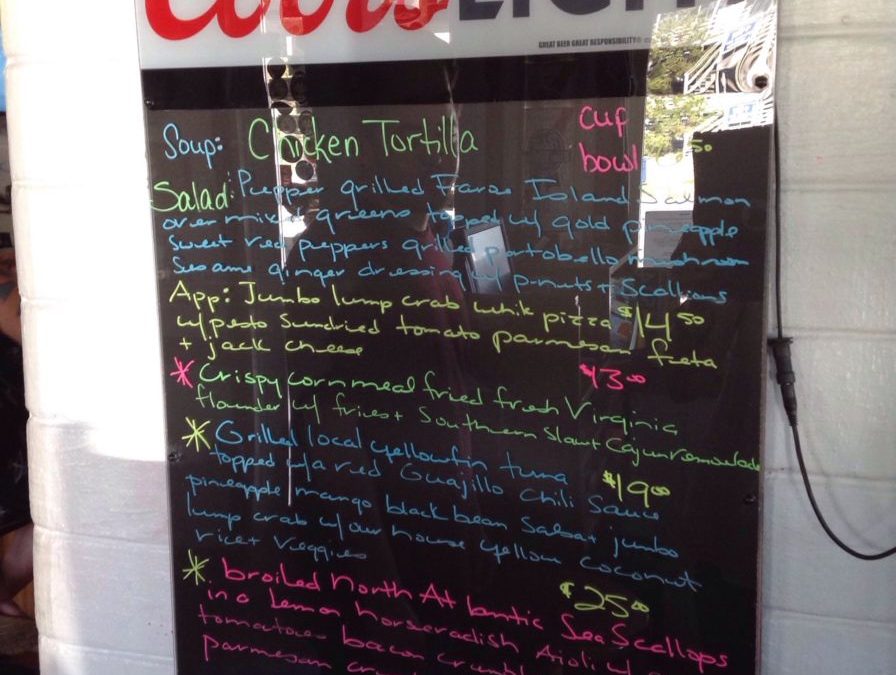 Coors LIGHT
GREAT BEER GREAT RESPONSIBILITY®
Soup: Chicken Tortilla cup
bowl .50
Salad: Pepper grilled Faroe Island Salmon
over mixed greens topped w/ gold pineapple
sweet red peppers grilled portobello mushroom
Sesame ginger dressing w/ p-nuts + Scallions
App: Jumbo lump crab whit pizza $14.50
w/ pesto Sundried tomato parmesan feta
+ jack cheese
* Crispy cornmeal fried fresh Virginia $13.00
flounder w/ fries + Southern Slaw + Cajun remoulade
* Grilled local yellowfin tuna $19.00
topped w/ a red Guajillo Chili Sauce
pineapple mango black bean Salsa + jumbo
lump crab w/ our house yellow coconut
rice + Veggies
* broiled North Atlantic Sea Scallops $25.00
in a Lemon horseradish Aioli w/
tomatoes bacon
parmesan